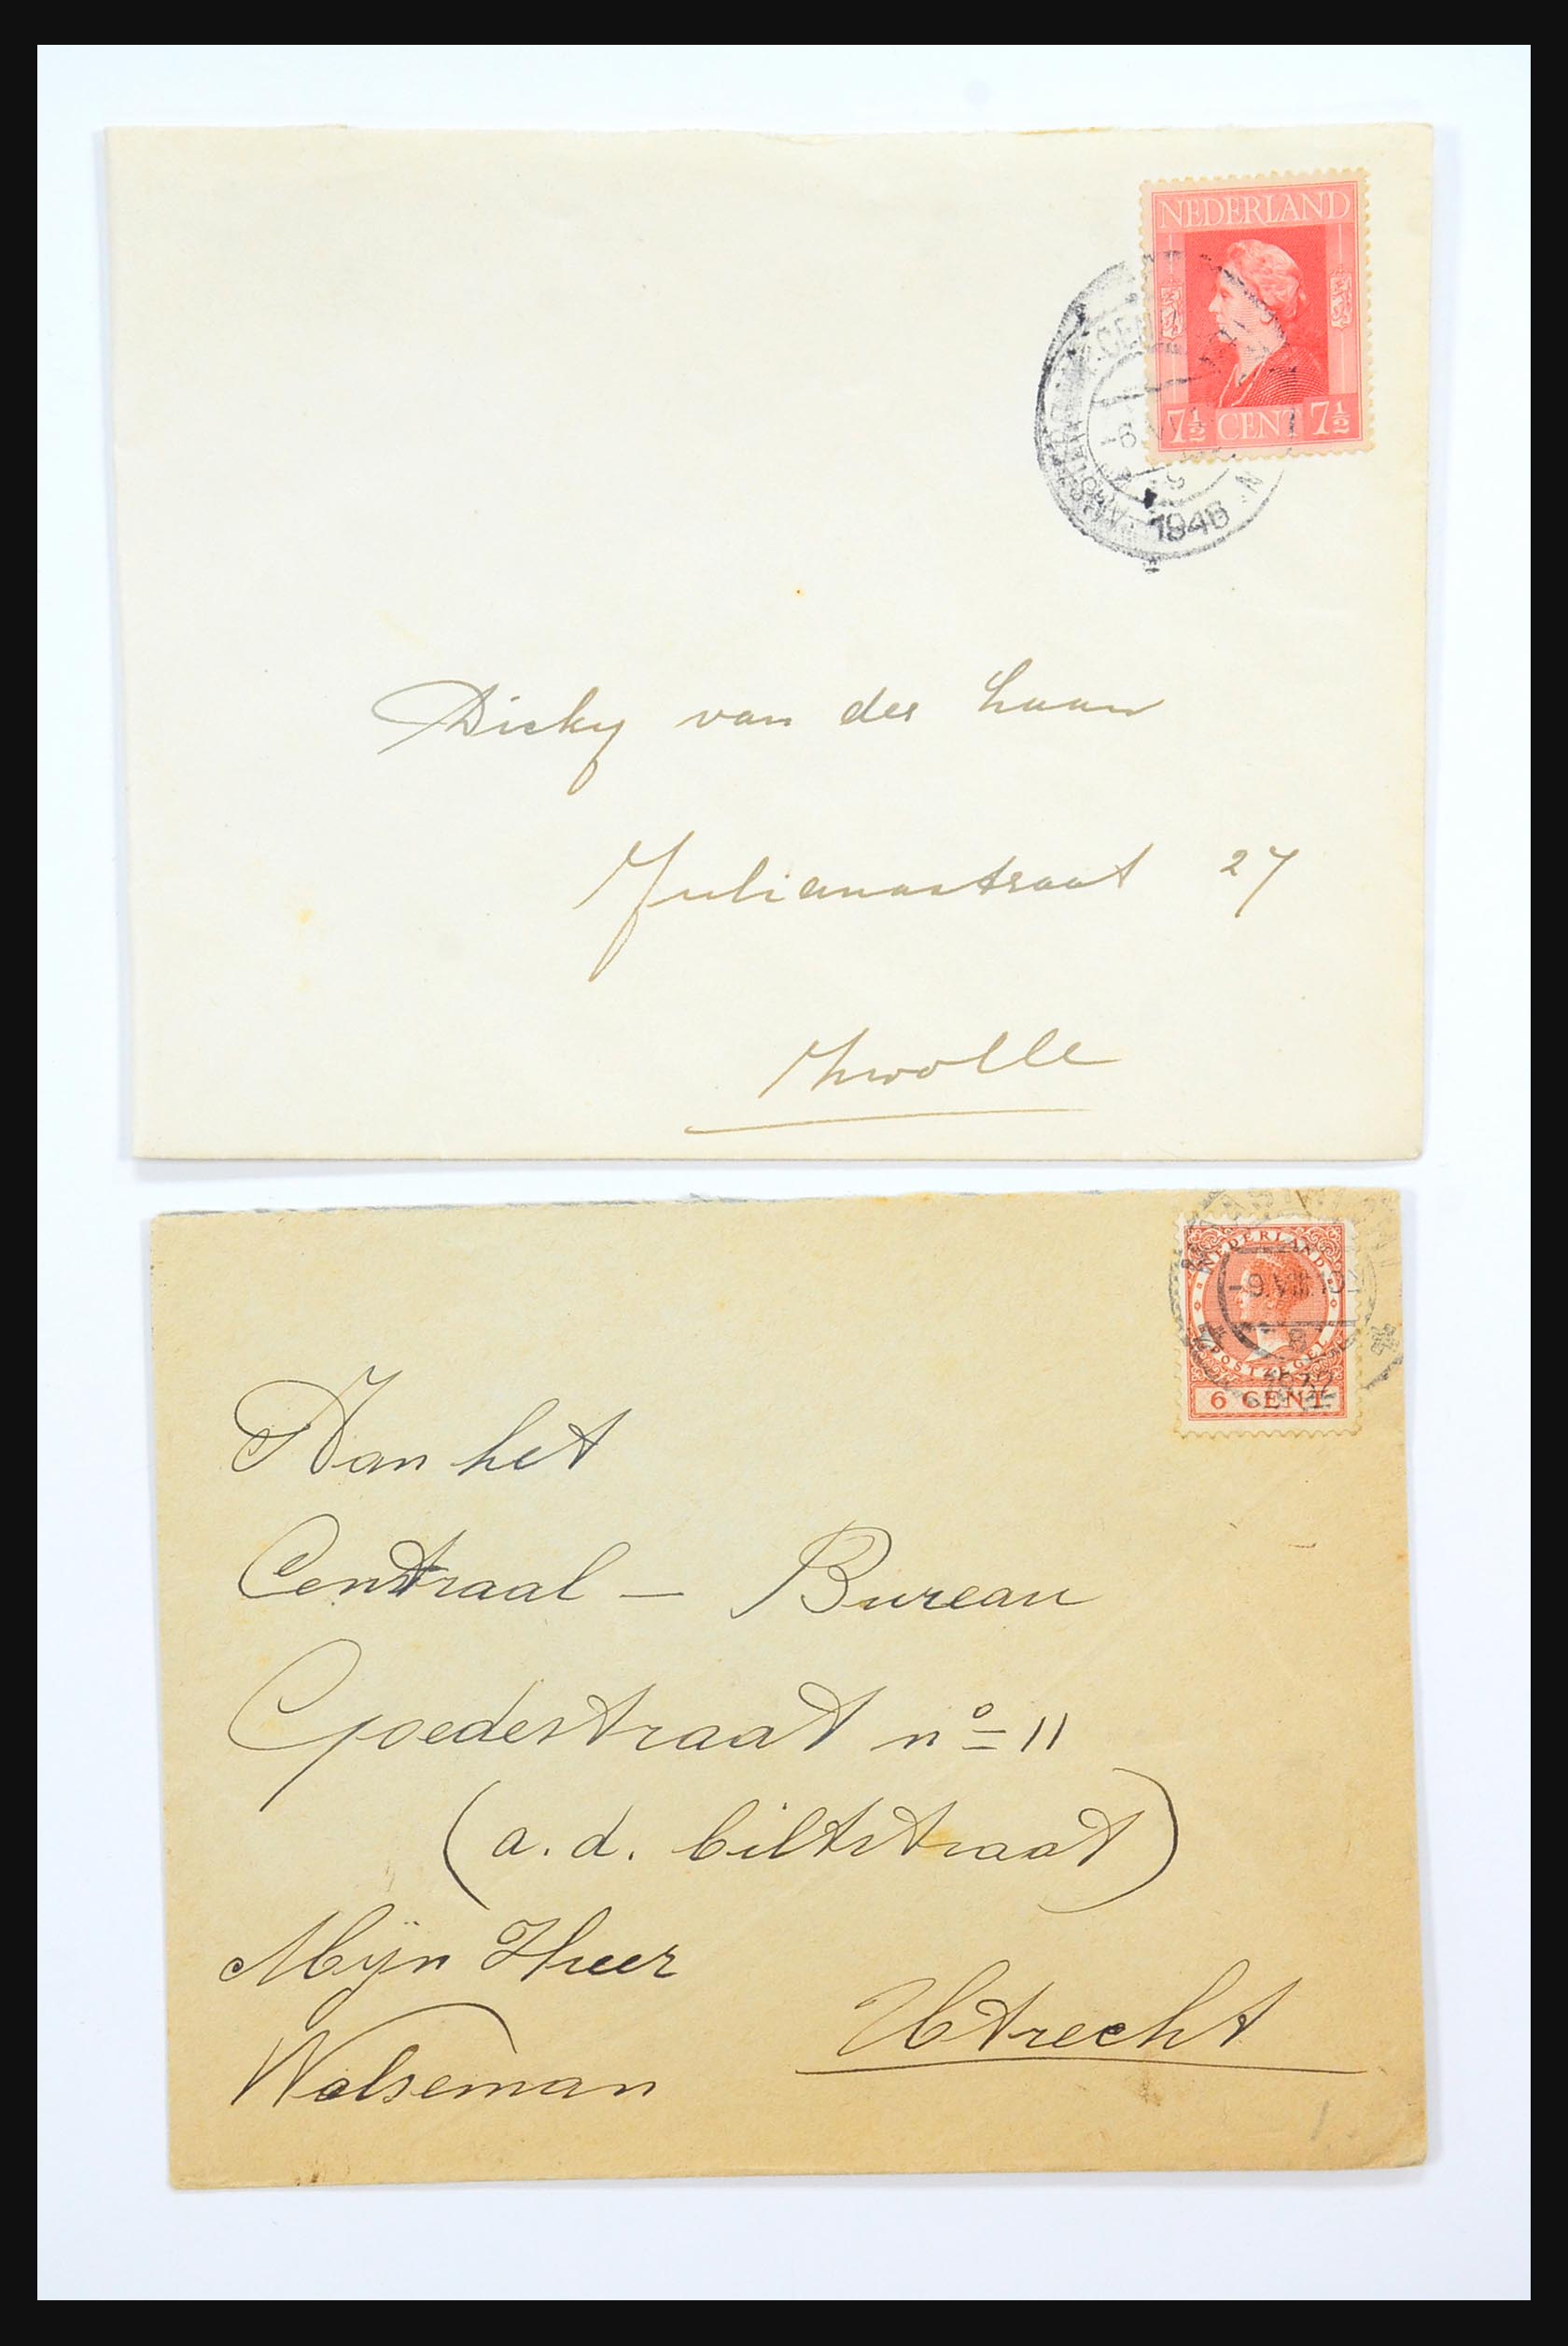 NEDERLAND
7½ CENT 7½
1946
Dicky van der Laan
Julianastraat 27
Zwolle
NEDERLAND
-9.VIII.19
8
1932
POSTZEGEL
6 CENT
Aan het
Centraal – Bureau
Goedestraat no 11
(a.d. biltstraat)
Mijn Heer
Walseman
Utrecht